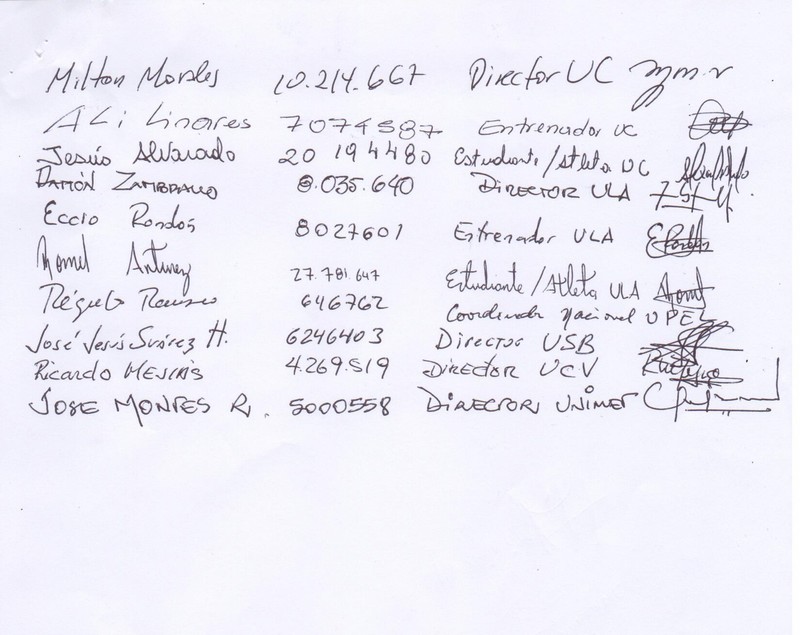 Milton Morales 10.214.667 Director UC
ALi Linares 7074587 Entrenador UC
Jesús Alvarado 20194480 Estudiante/Atleta UC
RAMÓN ZAMBRANO 8.035.640 DIRECTOR ULA
Eccio Rondós 8027601 Entrenador ULA
Antunez 27.781.647 Estudiante/Atleta ULA
Régulo 646762 Coordenador Nacional UPEL
José Jesús Suárez H. 6246403 Director USB
Ricardo 4.269.519 DIRECTOR UCV
JOSE MONTES R. 5000558 DIRECTOR, UNIMET